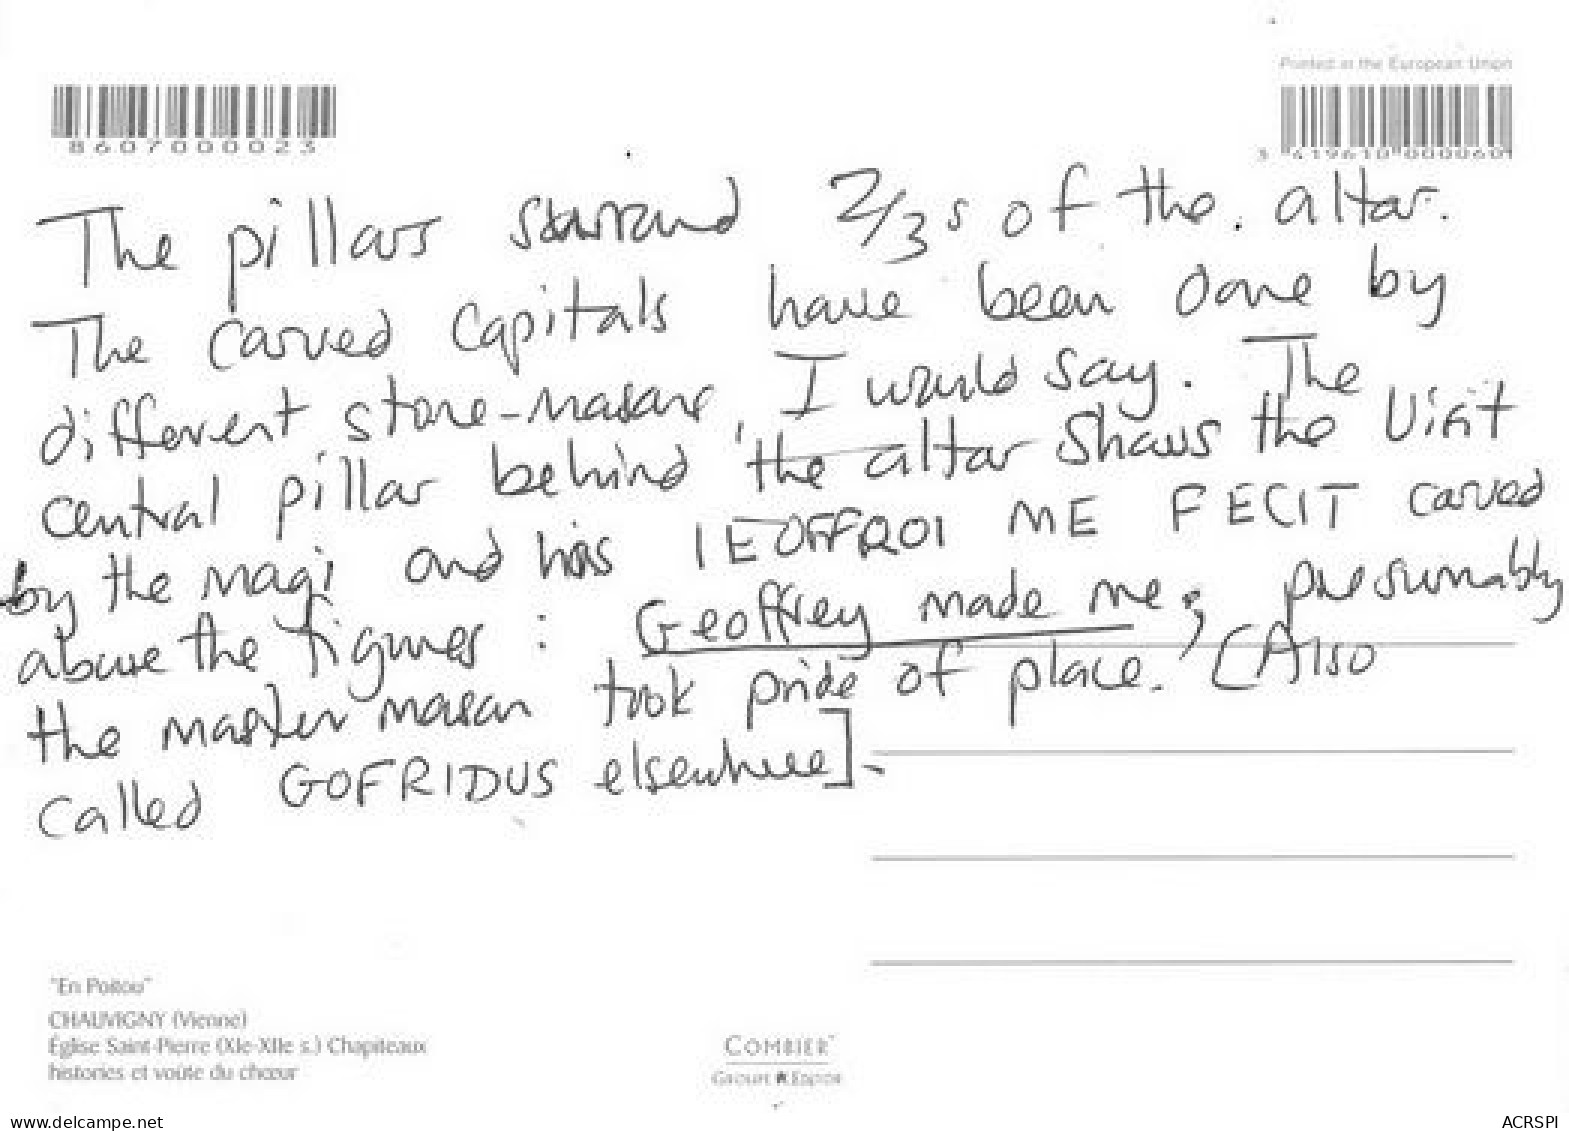 Printed in the European Union
8607000023
3 419610 000060
The pillars surround 2/3s of the altar.
The carved capitals have been done by
different stone-masons, I would say. The
central pillar behind the altar shows the Visit
by the magi and has IEOFFROI ME FECIT carved
above the figures : Geoffrey made me; presumably
the master mason took pride of place. [Also
called GOFRIDUS elsewhere].
"En Poitou"
CHAUVIGNY (Vienne)
Église Saint-Pierre (XIe-XIIe s.) Chapiteaux
histories et voûte du chœur
COMBIER
GROUPE ESTIOR
www.delcampe.net
ACRSPI